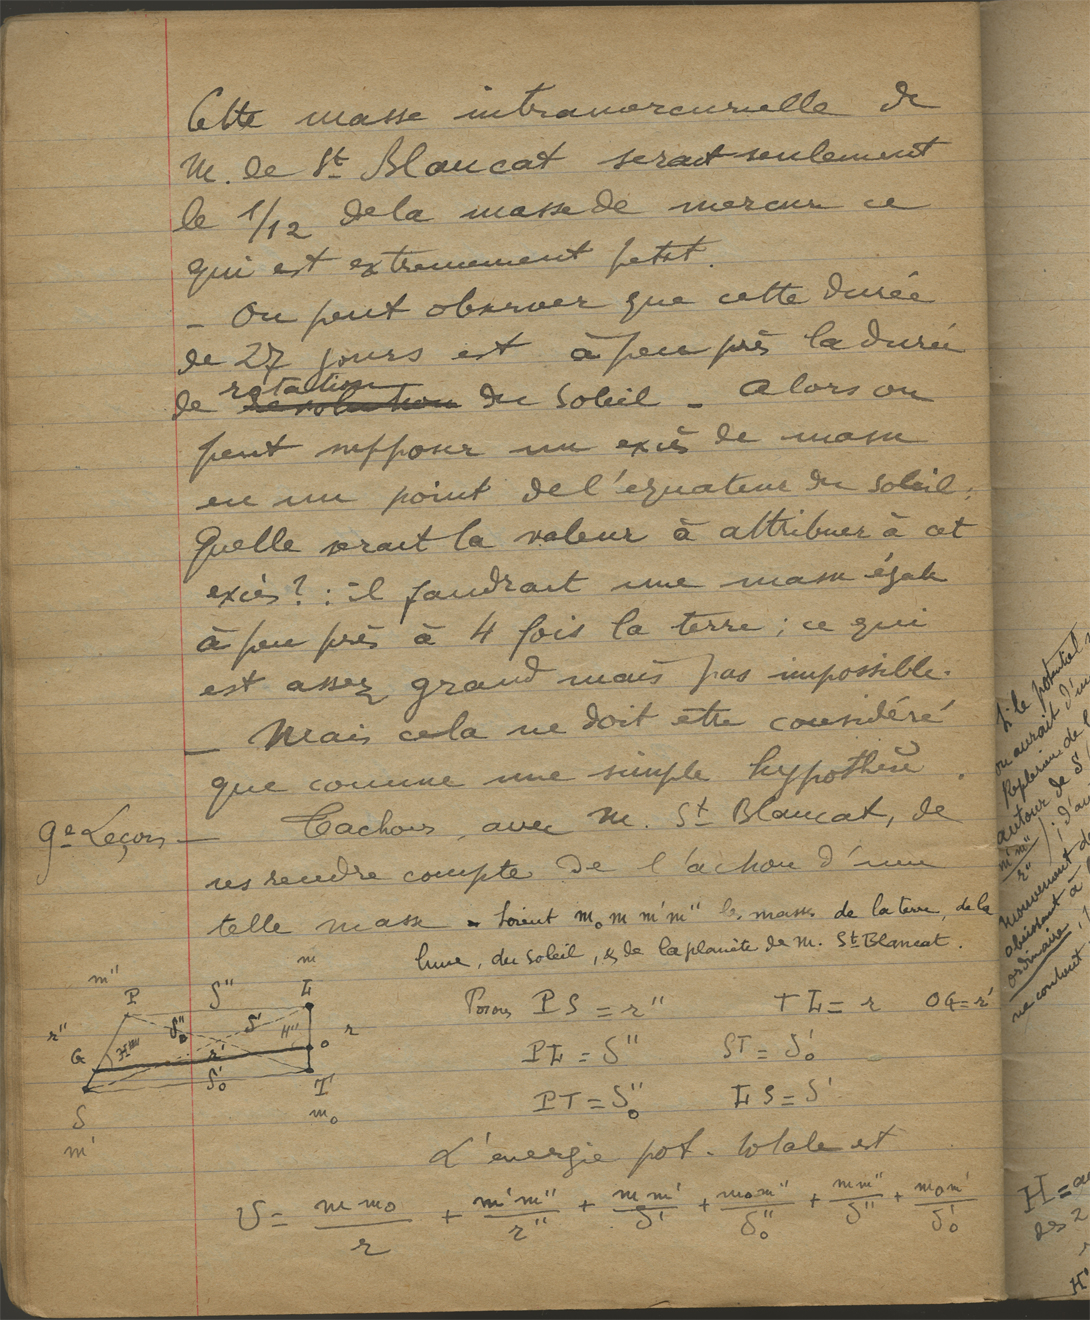 Cette masse intramercurielle de
M. de St Blancat serait seulement
le 1/12 de la masse de mercure ce
qui est extremement petit.
- On peut observer que cette durée
de 27 jours est à peu près la durée
de rotation du Soleil - Alors on
peut supposer un excès de masse
en un point de l'equateur du Soleil.
Quelle serait la valeur à attribuer à cet
excès? : il faudrait une masse égale
à peu près à 4 fois la terre ; ce qui
est assez grand mais pas impossible.
- Mais cela ne doit etre considéré
que comme une simple hypothèse.
9e Leçon - Tachons, avec M. St Blancat, de
us rendre compte de l'action d'une
telle masse - Soient m₀ m m' m'' les masses de la terre, de la
lune, du soleil, & de la planète de M. St Blancat.
m'' P δ'' L m
Posons PS = r'' TL = r OG = r'
r'' G H''' δ''₀ δ' H'' o r
r'
PL = δ'' ST = δ'₀
δ'₀
S m' T m₀
PT = δ''₀ LS = δ'
L'énergie pot. totale est
U = m m₀/r + m'm''/r'' + m m'/δ' + m₀m''/δ''₀ + m m''/δ'' + m₀m'/δ'₀
Si le potentiel
on aurait d'un
autour de S
m'm''/r''
mouvement de
obeissant à
ordinaire
ne contient
H = 
des 2
H'